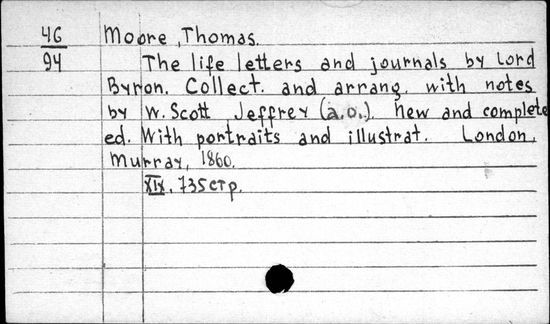 46 Moore, Thomas.
94 The life letters and journals by Lord
Byron. Collect. and arrang. with notes
by W. Scott Jeffrey (a.o.). New and complete
ed. With portraits and illustrat. London,
Murray, 1860.
XIX, 735 стр.